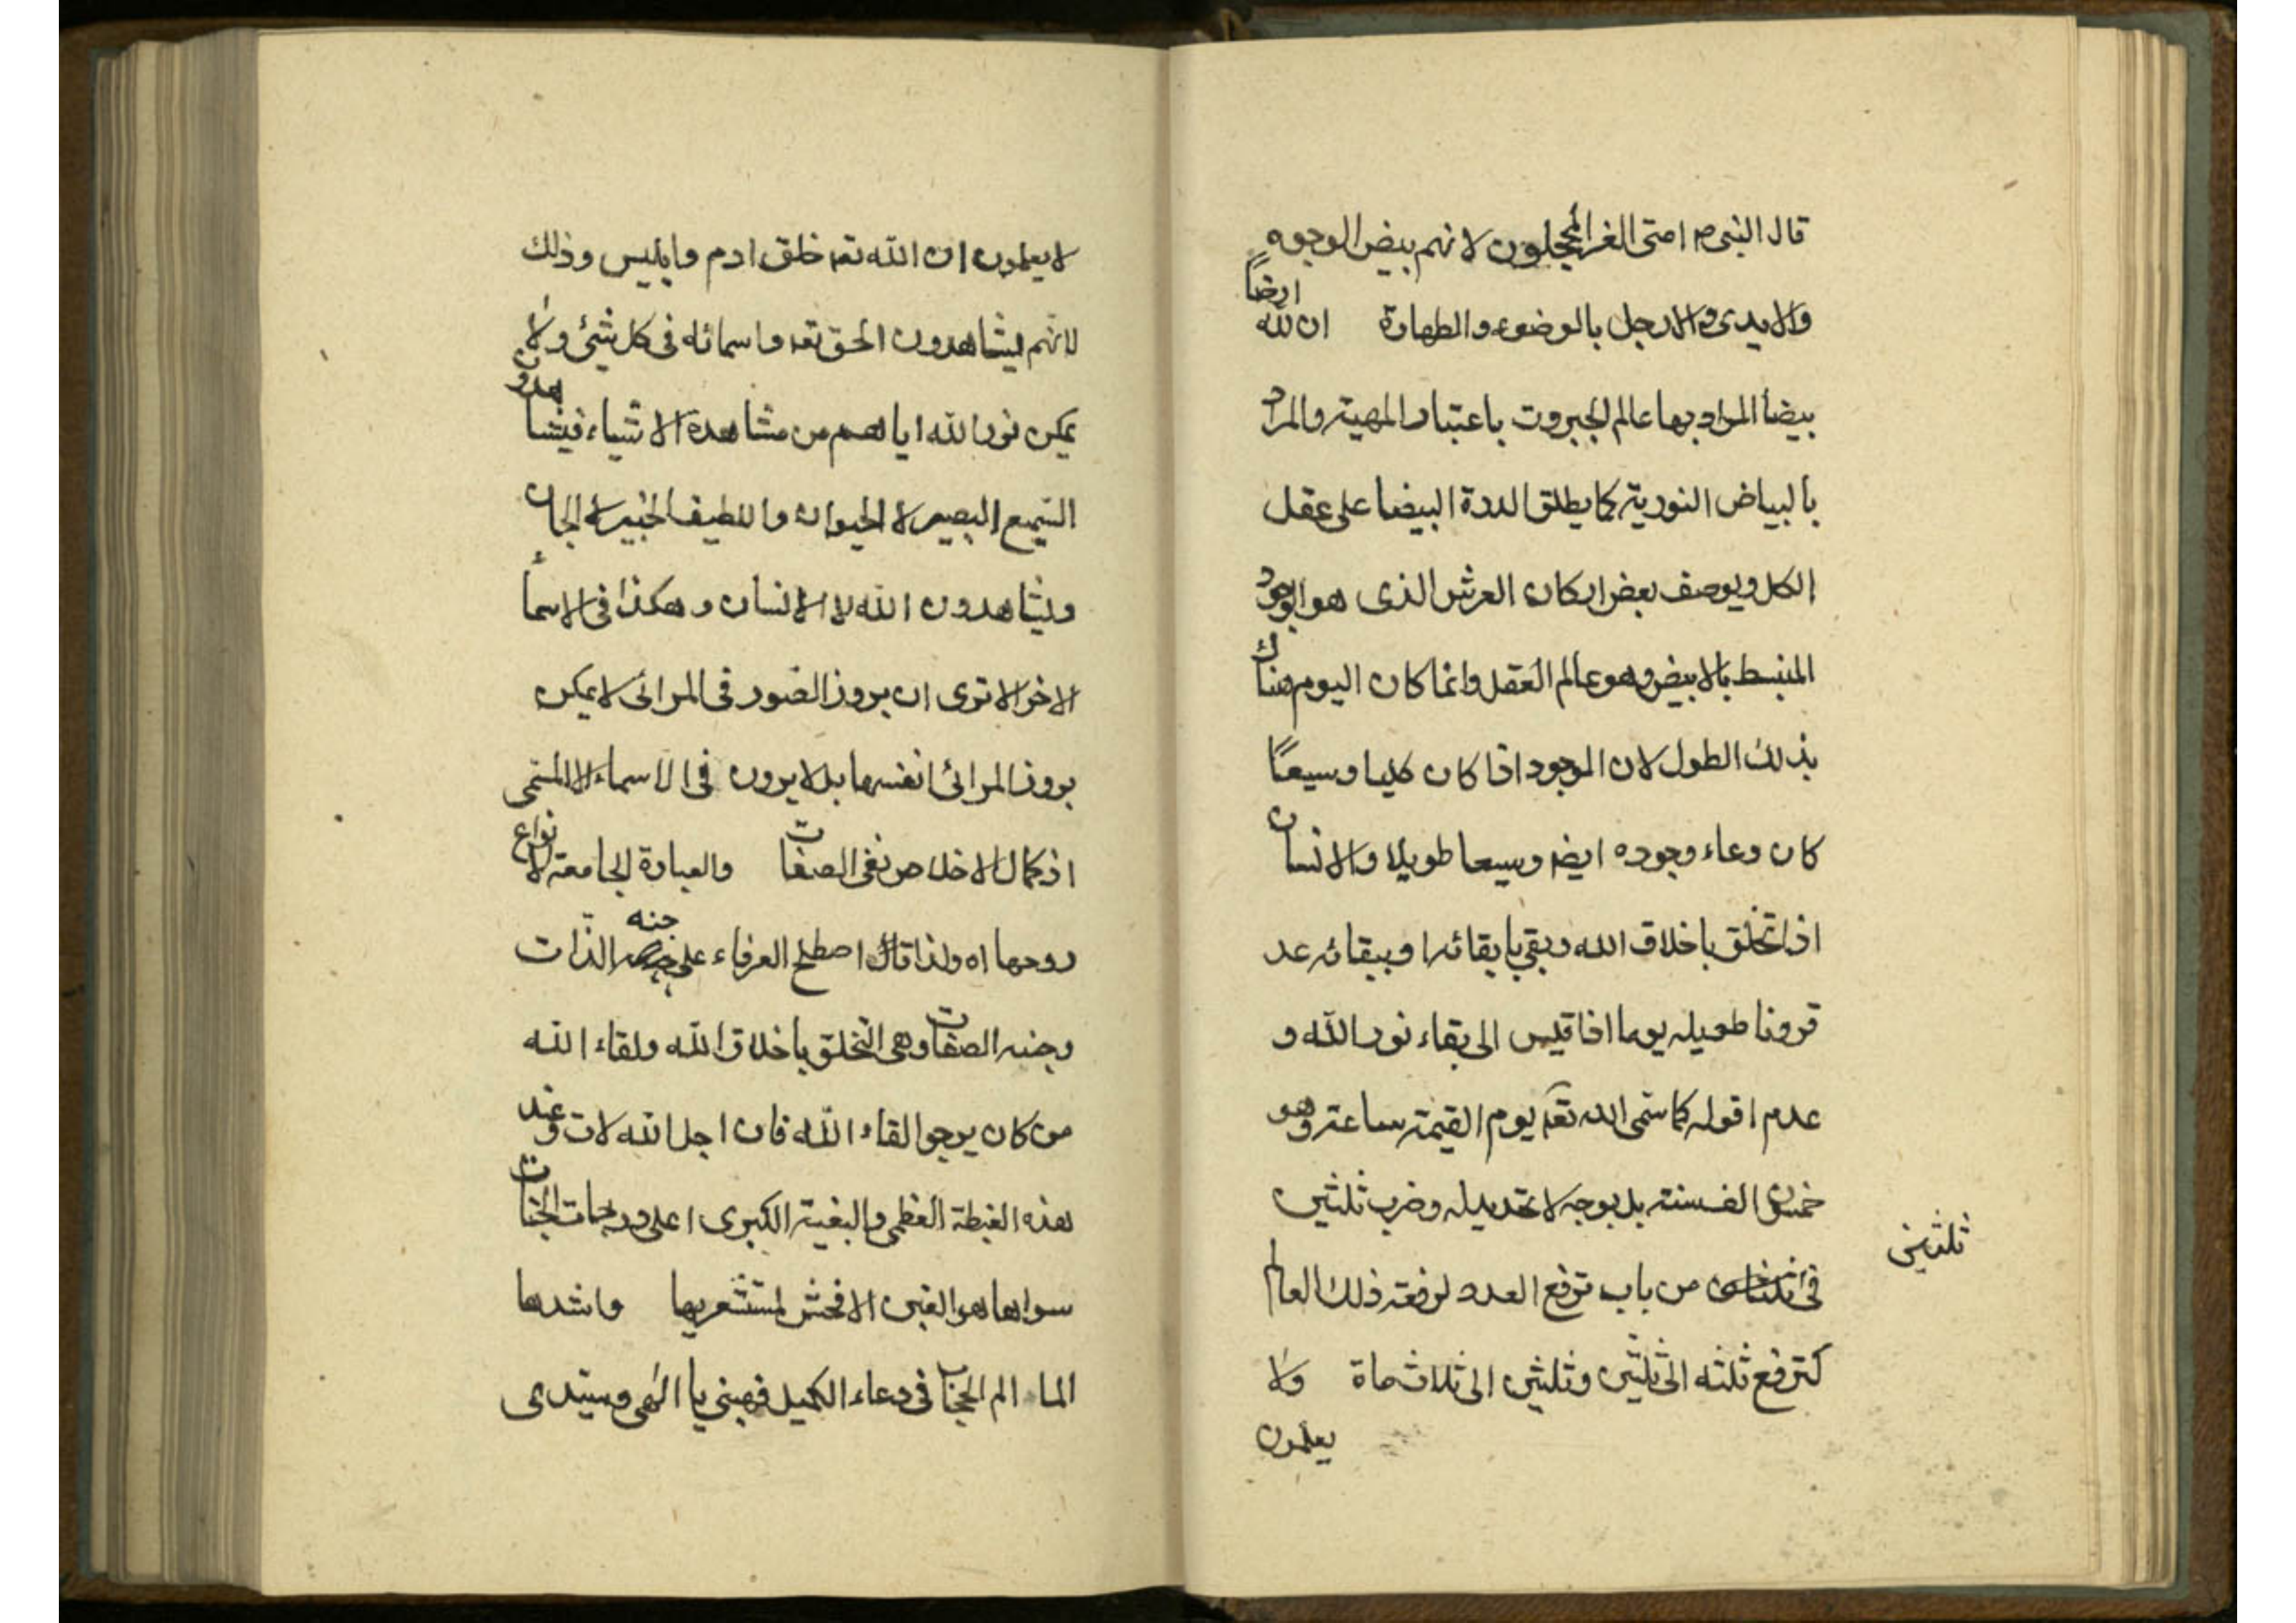 قال النبى ص امتى الغر المحجلون لانهم بيض الوجوه
والايدى والارجل بالوضوء والطهارة ان لله ارضاً
بيضا المراد بها عالم الجبروت باعتبار المهية والمراد
بالبياض النورية كما يطلق الدرة البيضا على عقل
الكل ويوصف بعض اركان العرش الذى هو الوجود
المنبسط بالابيض وهو عالم العقل وانما كان اليوم هناك
بذلك الطول لان الموجود اذا كان كليا وسيعًا
كان وعاء وجوده ايضا وسيعا طويلا والانسان
اذا تخلق باخلاق الله وبقى بابقائه او ببقائه عد
قرونا طويله يوما اذا قيس الى بقاء نور الله و
عدم افوله كما سمى الله تعه يوم القيمة ساعة وهو
خمسون الف سنة بل بوجه لا تحديد له وضرب ثلثين
فى ثلثين من باب ترفع العدد لرفعة ذلك العالم
كترفع ثلثه الى ثلثين وثلثين الى ثلاث مأة ولا
يعلمون
لا يعلمون ان الله تعه خلق ادم وابليس وذلك
لانهم يشاهدون الحق تعه واسمائه فى كل شئ ولا
يمكن نور الله اياهم من مشاهدة الاشياء فيشاهدون
السميع البصير لا الحيوان واللطيف الخبير لا الجان
ويشاهدون الله لا الانسان وهكذا فى الاسماء
الاخر الا ترى ان بروز الصور فى المرائى لا يمكن
بروز المرائى انفسها بل لا يرون فى الاسماء الا المسمى
اذ كمال الاخلاص نفى الصفات والعبادة الجامعة لانواع
روحها اه ولذا قال اصطلح العرفاء على جنه الذات
وجنه الصفات وهى التخلق باخلاق الله ولقاء الله
من كان يرجوا لقاء الله فان اجل الله لات وعند
هذه الغبطة العظمى والبغية الكبرى اعلى درجات الجنات
سواها هو الغبن الافحش لمستشعريها واشدها
الما الم الحجاب فى دعاء الكميل فهبنى يا الهى وسيدى